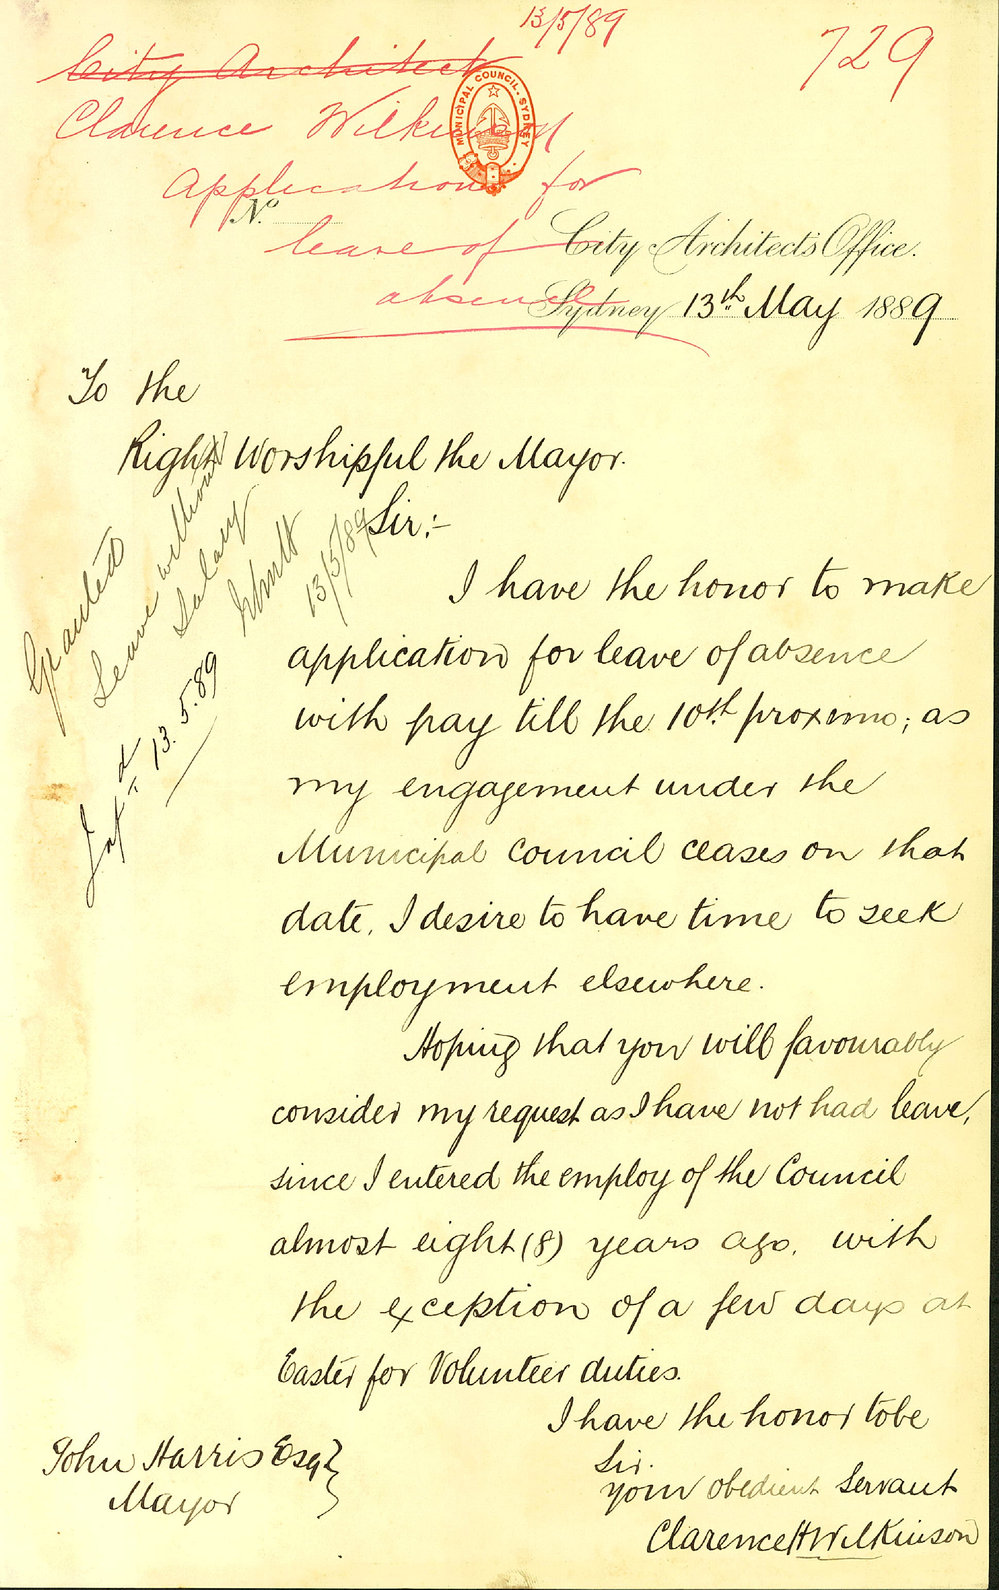 13/5/89
729
City Architect
Clarence Wilkinson
Application for
leave of
absence
MUNICIPAL COUNCIL · SYDNEY
No.
City Architect's Office.
Sydney 13th May 1889
To the
Right Worshipful the Mayor.
Sir:-
Granted
Leave without
Salary
13/5/89
13.5.89
I have the honor to make
application for leave of absence
with pay till the 10th proximo; as
my engagement under the
Municipal Council ceases on that
date, I desire to have time to seek
employment elsewhere.
Hoping that you will favourably
consider my request as I have not had leave,
since I entered the employ of the Council
almost eight (8) years ago, with
the exception of a few days at
Easter for Volunteer duties.
I have the honor to be
Sir.
your obedient Servant
Clarence H Wilkinson
John Harris Esqr
Mayor